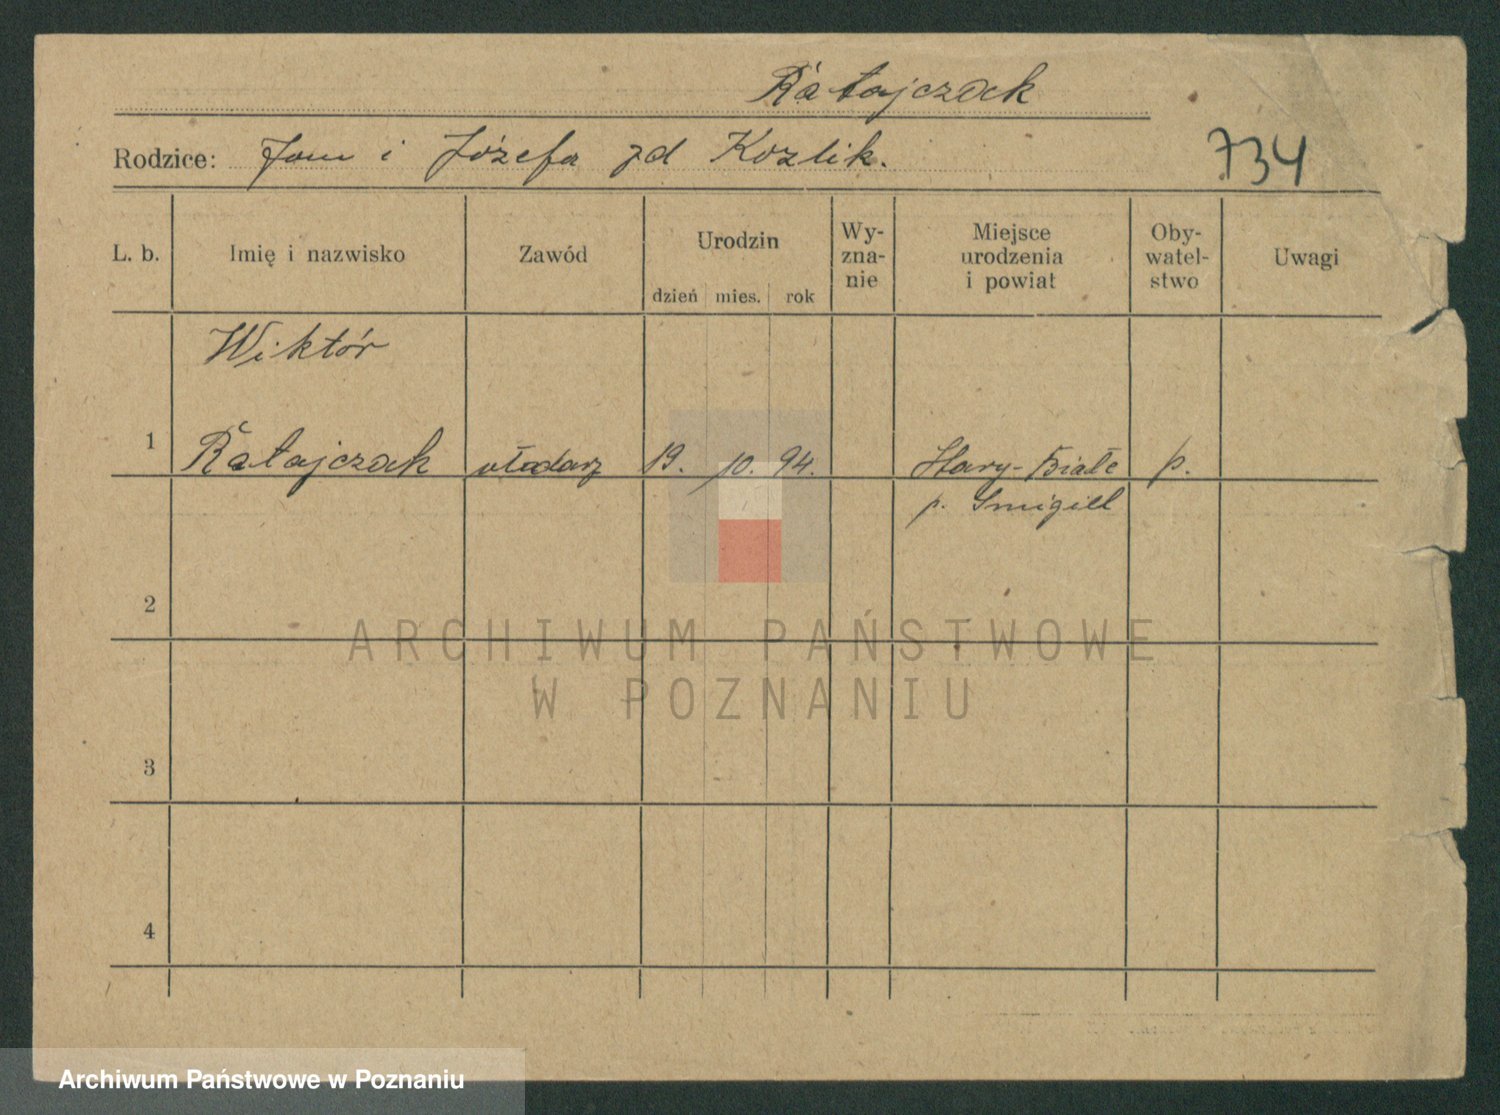 Ratajczak
Rodzice: Jan i Józefa zd Kozlik.
734
L. b. Imię i nazwisko Zawód Urodzin dzień mies. rok Wy-zna-nie Miejsce urodzenia i powiat Oby-watel-stwo Uwagi
Wiktór
1 Ratajczak włodarz 19. 10. 94. Stary-Białe p.
p. Smigiel
2
ARCHIWUM PAŃSTWOWE
W POZNANIU
3
4
Archiwum Państwowe w Poznaniu